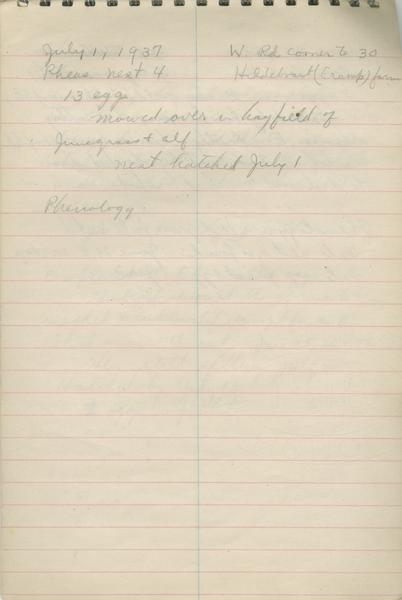 July 1, 1937
W. Rd corner to 30
Pheas nest 4
Hildebrant (Cramp) farm
13 eggs
mowed over in hayfield of
Junegrass + alf
nest hatched July 1
Phenology.